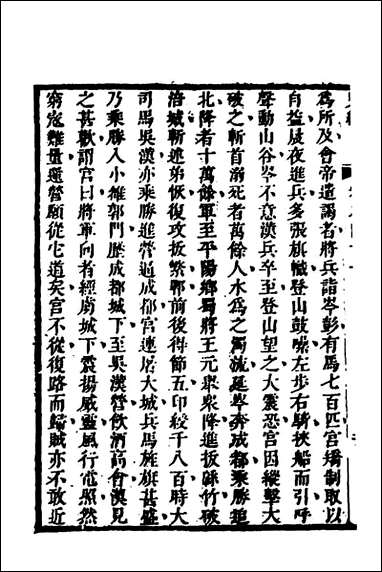 為所及會帝遣謁者將兵詣岑彭有馬七百匹宮矯制取以
自益晨夜進兵多張旗幟登山鼓噪左步右騎挾船而引呼
聲動山谷岑不意漢兵卒至登山望之大震恐宮因縱擊大
破之斬首溺死者萬餘人水為之濁流延岑奔成都乘勝追
北降者十萬餘軍至平陽鄉蜀將王元舉衆降進拔緜竹破
涪城斬述弟恢復攻拔繁郫前後得節五印綬千八百時大
司馬吳漢亦乘勝進營逼成都宮連屠大城兵馬旌旗甚盛
乃乘勝入小雒郭門歷成都城下至吳漢營飲酒高會漢見
之甚歡謂宮曰將軍向者經虜城下震揚威靈風行電照然
窮寇難量還營願從它道矣宮不從復路而歸賊亦不敢近